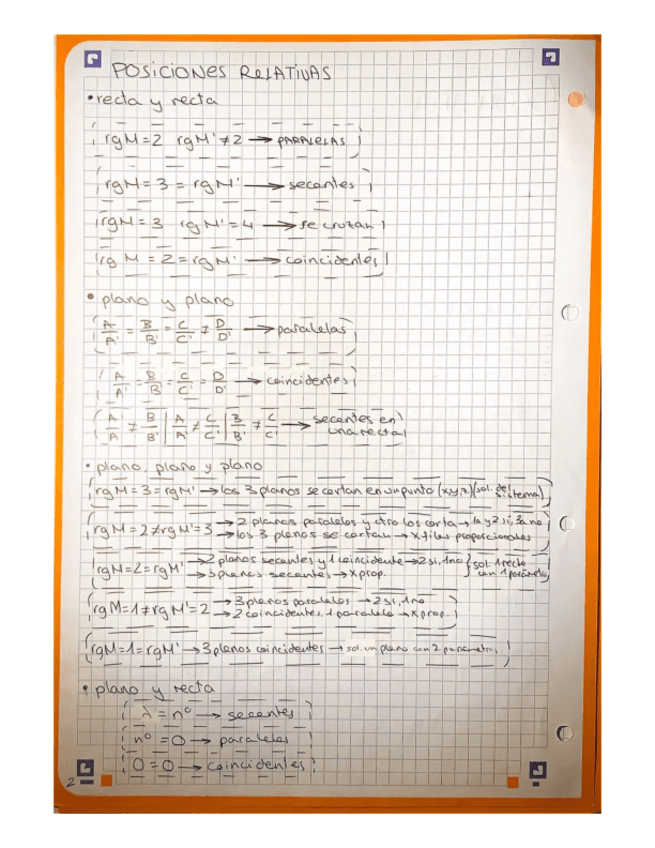 POSICIONES RELATIVAS
• recta y recta
rgM=2 rgM'≠2 → PARALELAS
rgM=3=rgM' → secantes
rgM=3 rgM'=4 → se cruzan
rg M = 2 = rgM' → coincidentes
• plano y plano
A/A' = B/B' = C/C' ≠ D/D' → paralelas
A/A' = B/B' = C/C' = D/D' → coincidentes
A/A' ≠ B/B' | A/A' ≠ C/C' | B/B' ≠ C/C' → secantes en una recta
• plano, plano y plano
rgM=3=rgM' → los 3 planos se cortan en un punto (x,y,z) (sol. del sistema)
rgM=2≠rgM'=3 → 2 planos paralelos y otro los corta → 1a y 2 si, 3a no
→ los 3 planos se cortan → x filas proporcionales
rgM=2=rgM' → 2 planos secantes y 1 coincidente → 2 si, 1 no
→ 3 planos secantes → x prop.
sol. 1 recta con 1 parámetro
rgM=1≠rgM'=2 → 3 planos paralelos → 2 si, 1 no
→ 2 coincidentes, 1 paralelo → x prop.
rgM=1=rgM' → 3 planos coincidentes → sol. un plano con 2 parametros
• plano y recta
λ = nº → secantes
nº = 0 → paralelos
0 = 0 → coincidentes
2